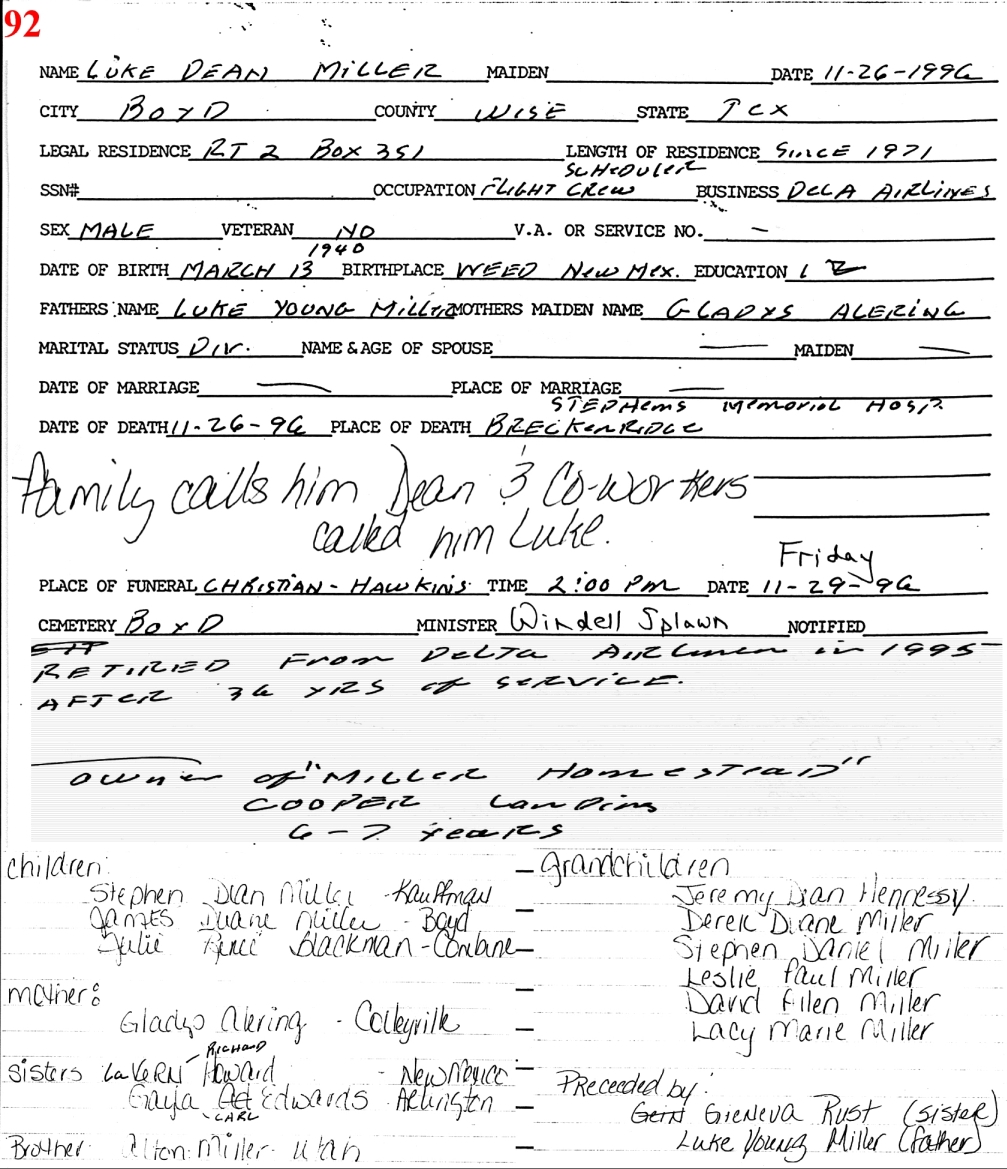 92
NAME LUKE DEAN MILLER MAIDEN DATE 11-26-1996
CITY BOYD COUNTY WISE STATE TEX
LEGAL RESIDENCE RT 2 BOX 351 LENGTH OF RESIDENCE SINCE 1971
SCHEDULER
SSN# OCCUPATION FLIGHT CREW BUSINESS DELA AIRLINES
SEX MALE VETERAN NO V.A. OR SERVICE NO. —
1940
DATE OF BIRTH MARCH 13 BIRTHPLACE WEED New Mex. EDUCATION 12
FATHERS NAME LUKE YOUNG MILLER MOTHERS MAIDEN NAME GLADYS ALERING
MARITAL STATUS DIV. NAME & AGE OF SPOUSE — MAIDEN —
DATE OF MARRIAGE — PLACE OF MARRIAGE —
STEPHENS Memorial HOSP.
DATE OF DEATH 11-26-96 PLACE OF DEATH BRECKENRIDGE
Family calls him Dean & Co-workers
called him Luke.
Friday
PLACE OF FUNERAL CHRISTIAN-HAWKINS TIME 2:00 PM DATE 11-29-96
CEMETERY BOYD MINISTER Windell Splawn NOTIFIED
RETIRED From DELTA AIRLINES in 1995
AFTER 36 YRS of SERVICE.
OWNER of "MILLER HOMESTEAD"
COOPER LANDING
6-7 years
children: grandchildren
Stephen Dean Miller - Kauffman Jeremy Dean Hennessy
James Duane Miller - Boyd Derek Duane Miller
Julie Reneé Blackman - Stephen Daniel Miller
Leslie Paul Miller
mother: David Allen Miller
Gladys Alering - Colleyville Lacy Marie Miller
RICHARD
sisters LaVERN Howard - New Mexico Preceeded by:
Gayla Edwards - Arlington Geneva Rust (sister)
CARL
Brother Alton Miller - Utah Luke Young Miller (father)